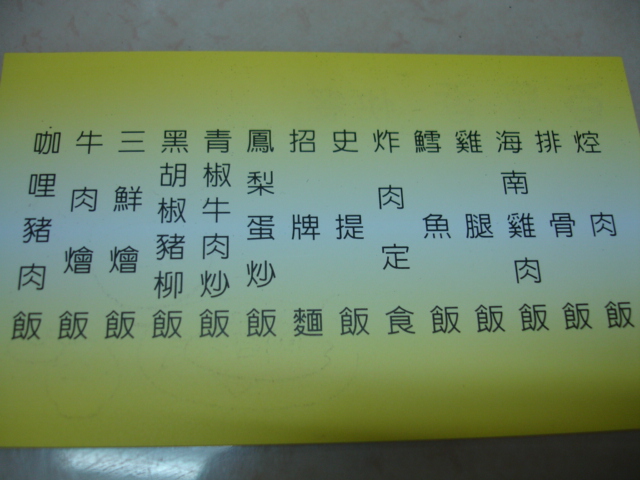 焢肉飯
排骨飯
海南雞肉飯
雞腿飯
鱈魚飯
炸肉定食
史提飯
招牌麵
鳳梨蛋炒飯
青椒牛肉炒飯
黑胡椒豬柳飯
三鮮燴飯
牛肉燴飯
咖哩豬肉飯